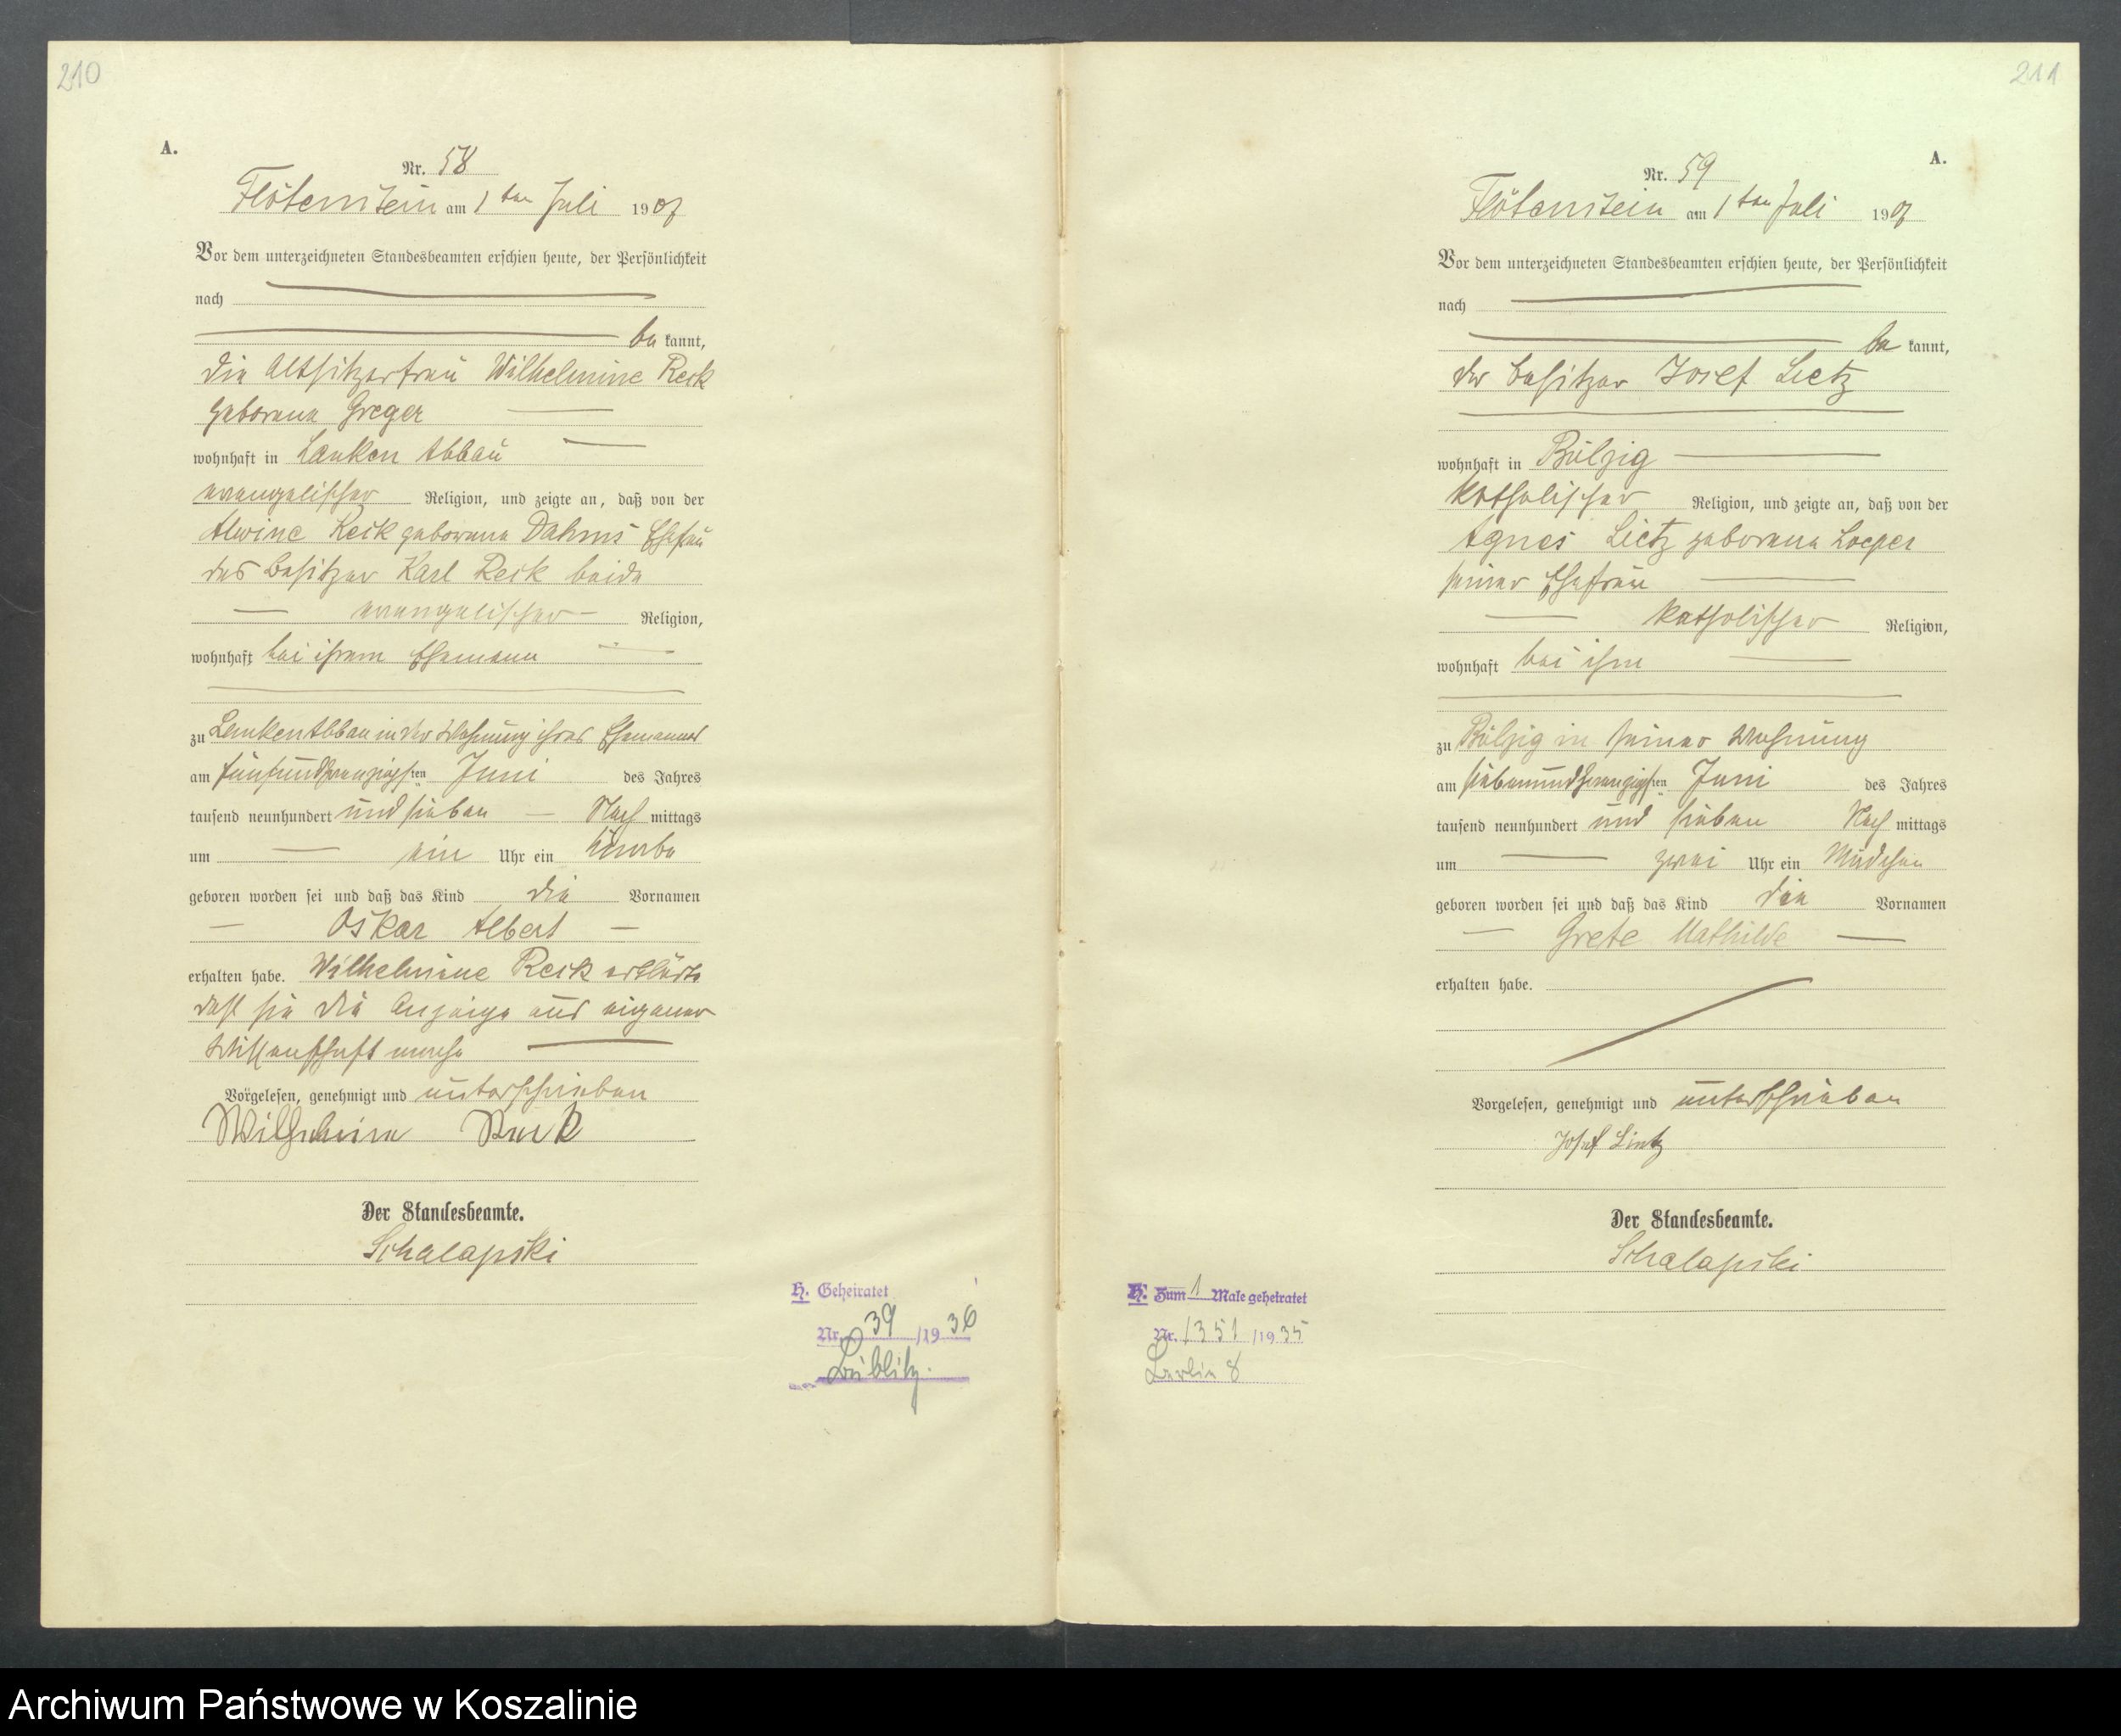 210
A.
Nr. 58
Flötenstein am 1ten Juli 1907
Vor dem unterzeichneten Standesbeamten erschien heute, der Persönlichkeit
nach
be kannt,
die Altsitzerfrau Wilhelmine Reck
geborene Greger
wohnhaft in Lanken Abbau
evangelischer Religion, und zeigte an, daß von der
Alwine Reck geborene Dahms Ehefrau
des Besitzer Karl Reck beide
evangelischer Religion,
wohnhaft bei ihrem Ehemann
zu Lanken Abbau in der Wohnung ihres Ehemannes
am fünfundzwanzigsten Juni des Jahres
tausend neunhundert und sieben Nach mittags
um ein Uhr ein Knabe
geboren worden sei und daß das Kind die Vornamen
Oskar Albert
erhalten habe. Wilhelmine Reck erklärte
daß sie die Anzeige aus eigener
Wissenschaft mache
Vorgelesen, genehmigt und unterschrieben
Wilhelmine Reck
Der Standesbeamte.
Schalapski
H. Geheiratet
Nr. 39 /19 36
211
A.
Nr. 59
Flötenstein am 1ten Juli 1907
Vor dem unterzeichneten Standesbeamten erschien heute, der Persönlichkeit
nach
be kannt,
der Besitzer Josef Lietz
wohnhaft in Bölzig
katholischer Religion, und zeigte an, daß von der
Agnes Lietz geborene Loeper
seiner Ehefrau
katholischer Religion,
wohnhaft bei ihm
zu Bölzig in seiner Wohnung
am siebenundzwanzigsten Juni des Jahres
tausend neunhundert und sieben Nach mittags
um zwei Uhr ein Mädchen
geboren worden sei und daß das Kind die Vornamen
Grete Mathilde
erhalten habe.
Vorgelesen, genehmigt und unterschrieben
Josef Lietz
Der Standesbeamte.
Schalapski
H. Zum 1 Male geheiratet
Nr. 1351 /1935
Berlin 8
Archiwum Państwowe w Koszalinie